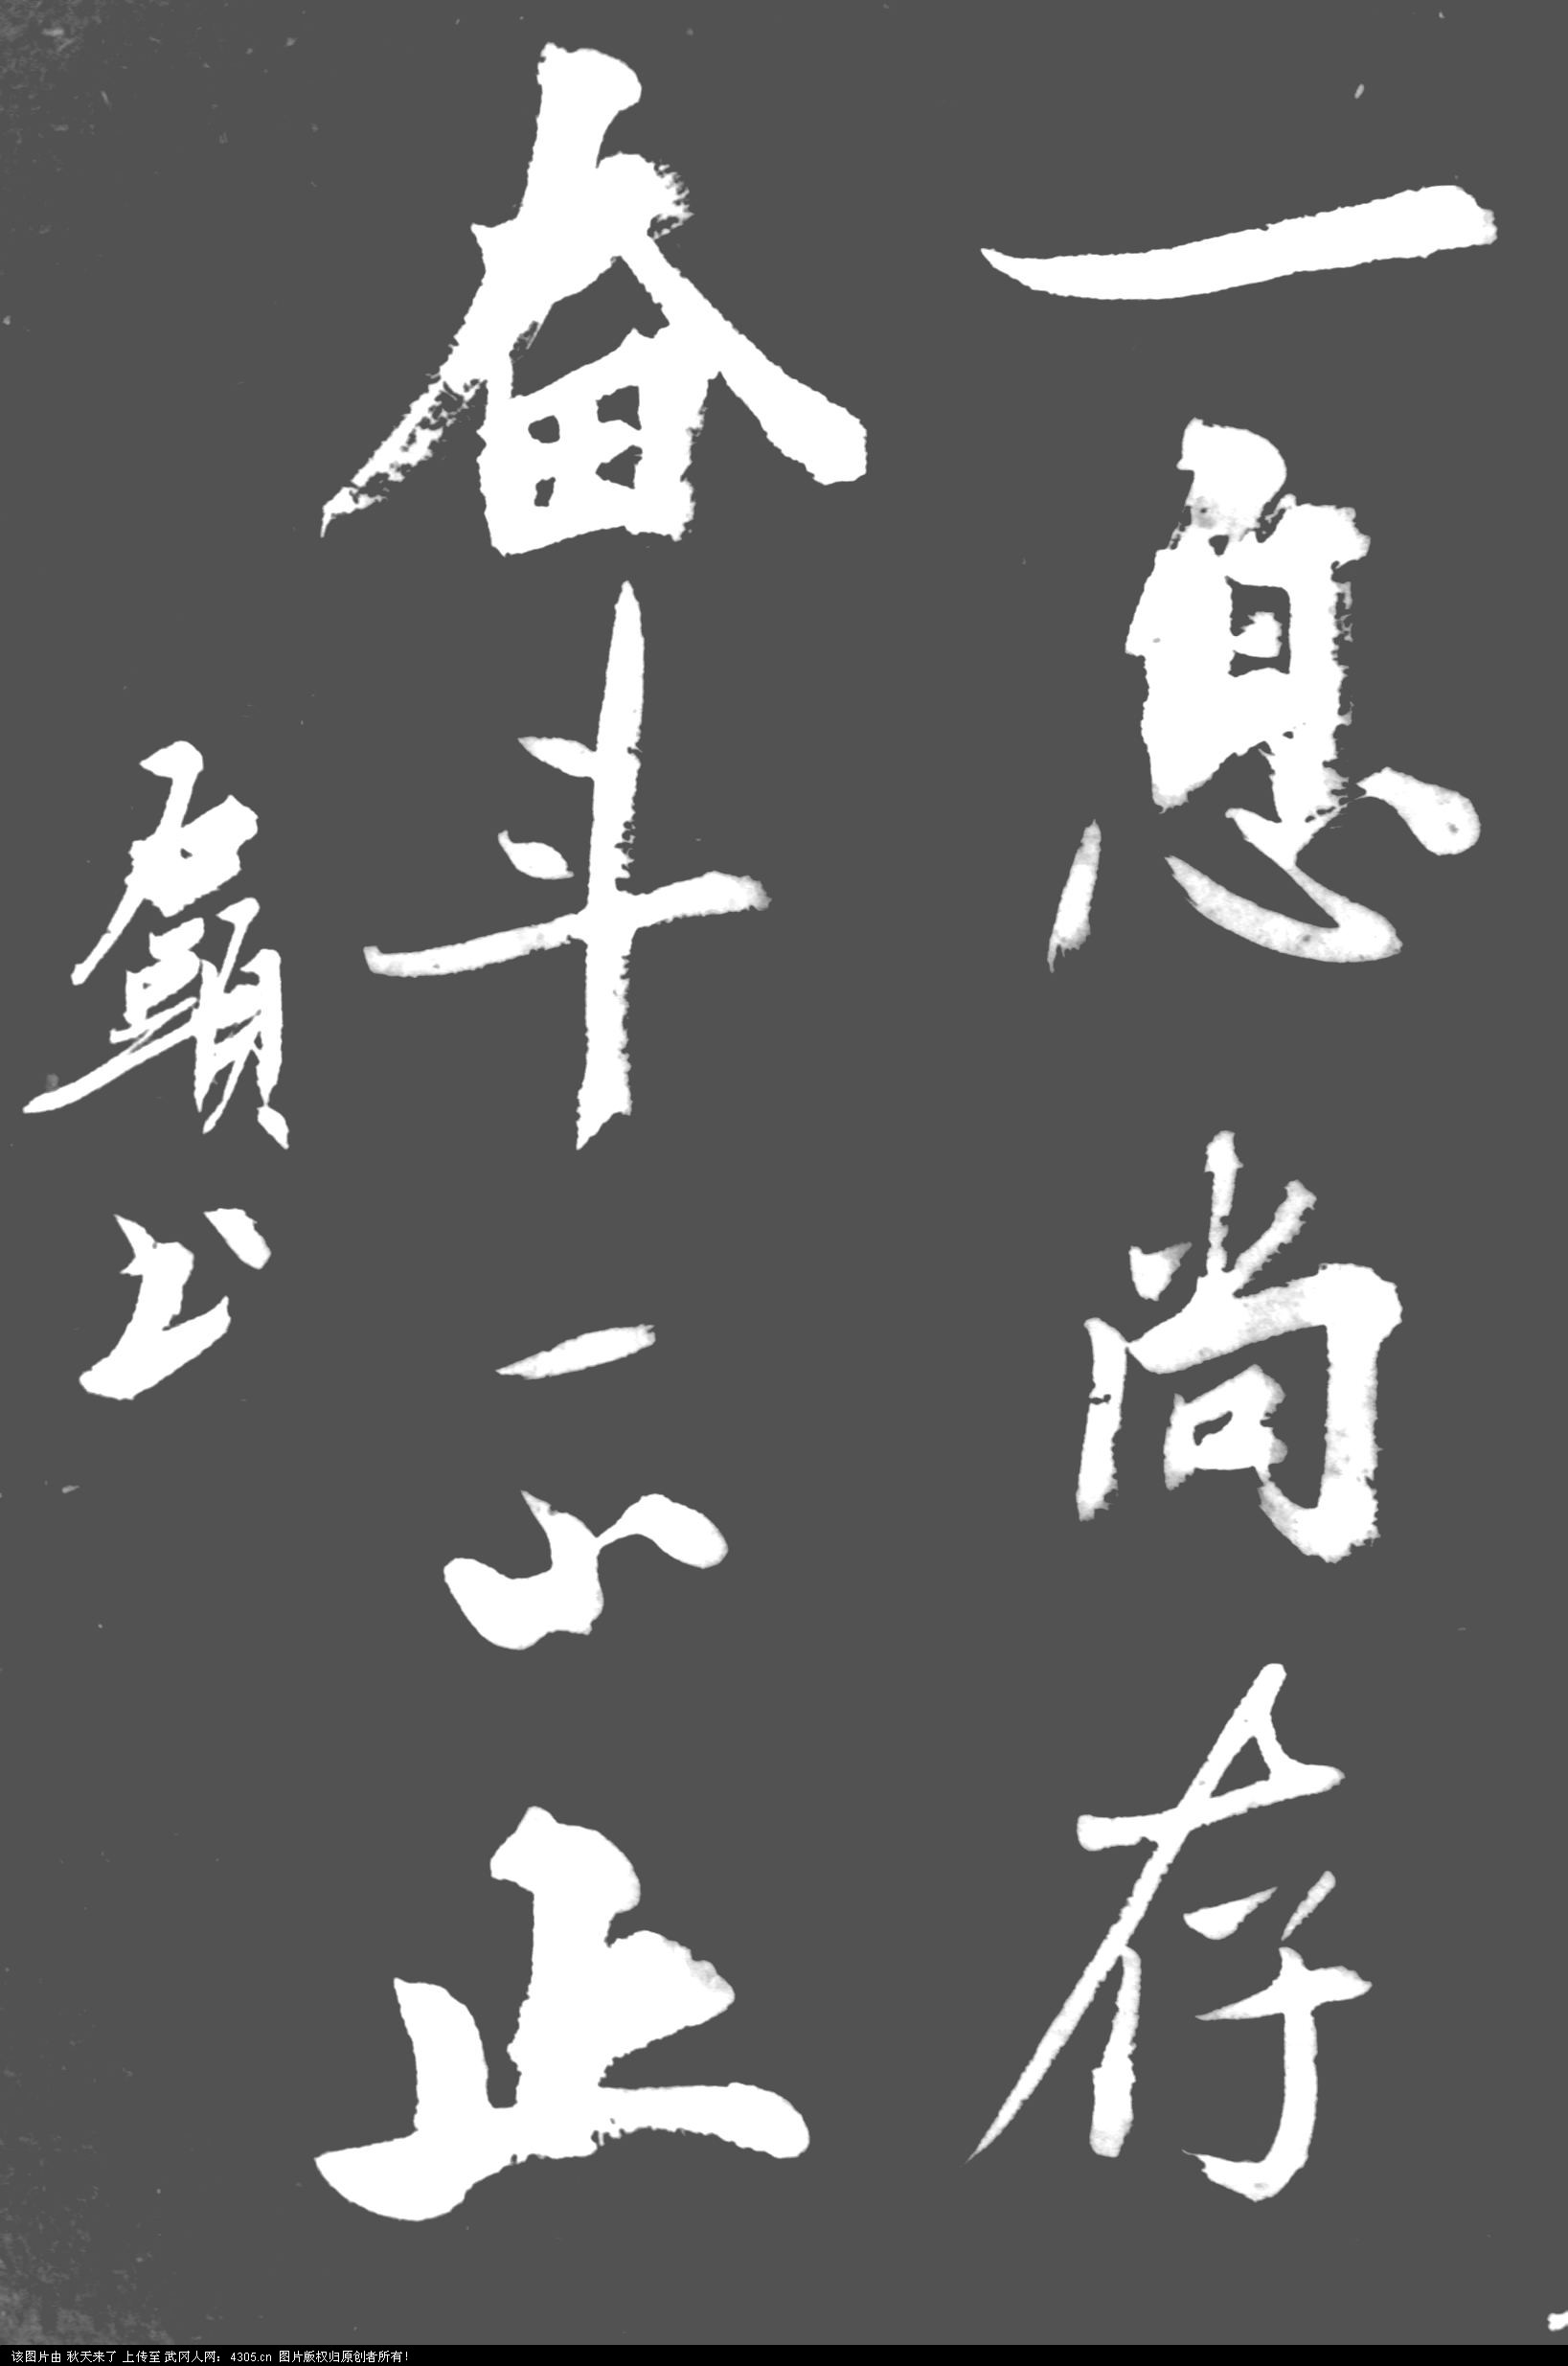 一息尚存
奋斗不止
书
该图片由 秋天来了 上传至 武冈人网：4305.cn 图片版权归原创者所有！